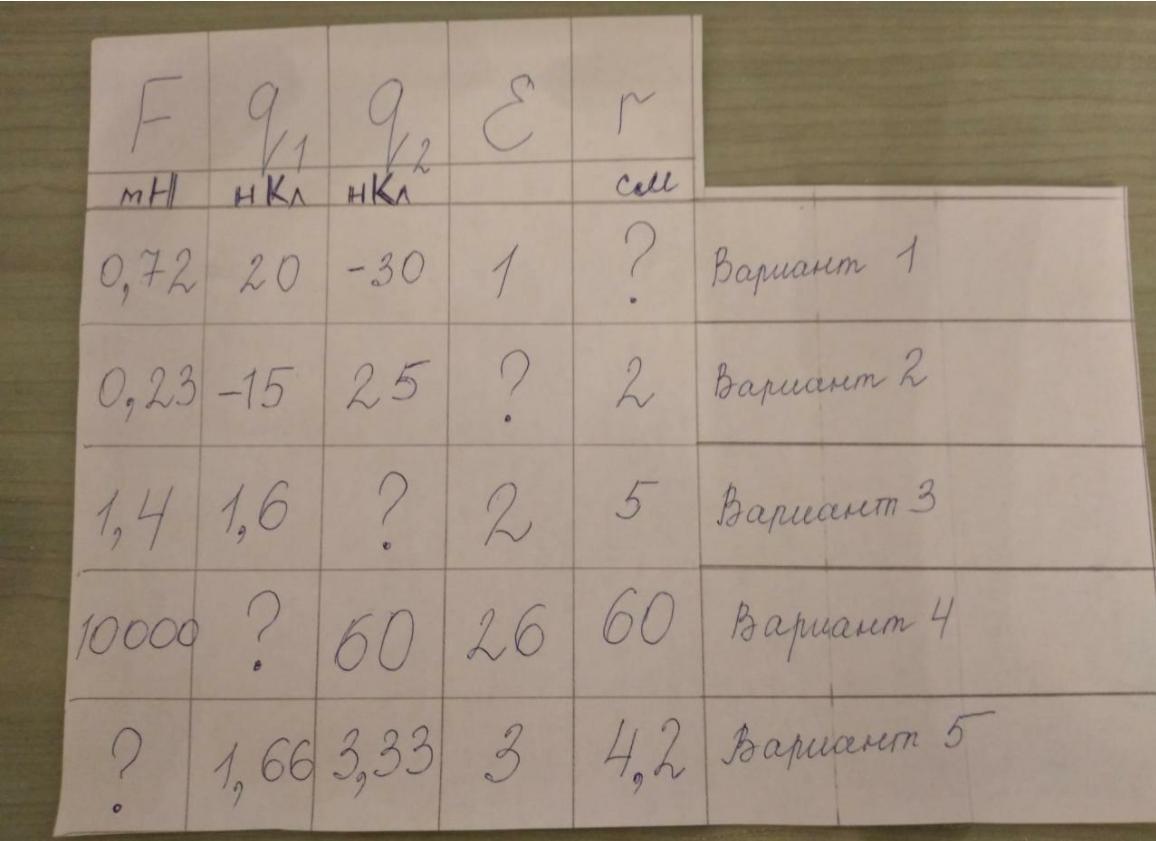 F q₁ q₂ ε r
mН нКл нКл см
0,72 20 -30 1 ? Вариант 1
0,23 -15 25 ? 2 Вариант 2
1,4 1,6 ? 2 5 Вариант 3
10000 ? 60 26 60 Вариант 4
? 1,66 3,33 3 4,2 Вариант 5